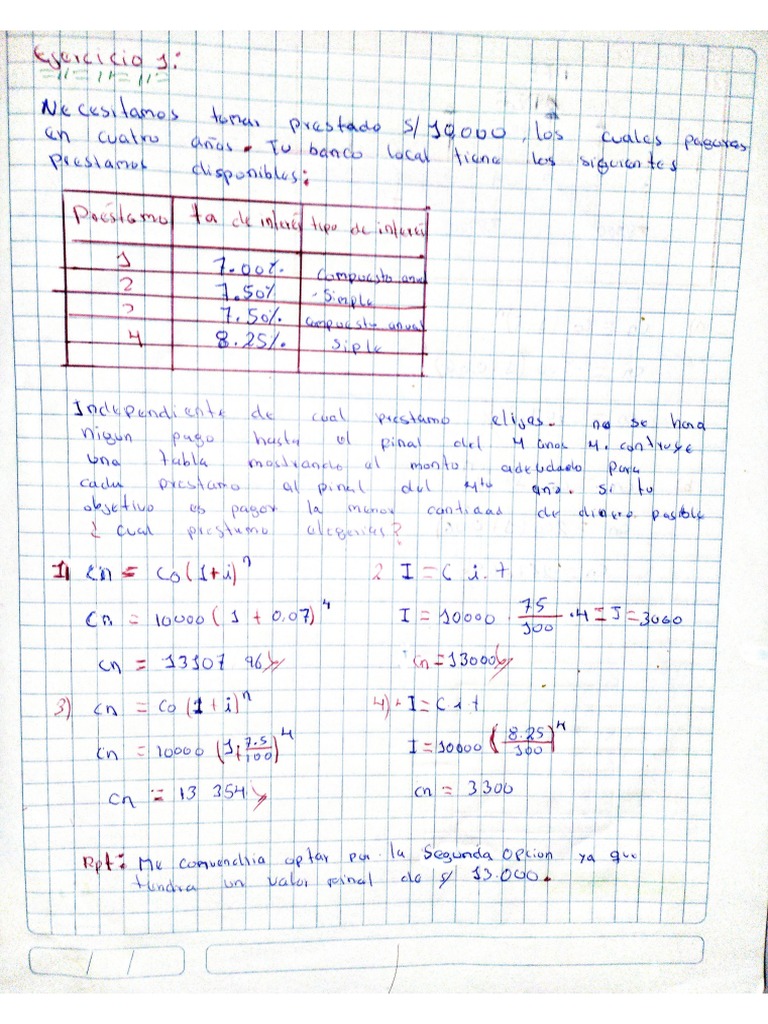 Ejercicio 1:
Necesitamos tomar prestado S/ 10000, los cuales pagares
en cuatro años. Tu banco local tiene los siguientes
prestamos disponibles:
Préstamo ta de interés tipo de interés
1 7.00% compuesto anual
2 7.50% Simple
3 7.50% compuesto anual
4 8.25% Siple
Independiente de cual prestamo elijas. no se hara
nigun pago hasta el final del 4 años 4. contruye
una tabla mostrando el monto adeudado para
cada prestamo al final del 4to año. si tu
objetivo es pagar la menor cantidad de dinero posible
¿ cual prestamo elegerias?
1) Cn = Co(1+i)^n
Cn = 10000 (1 + 0.07)^4
Cn = 13107 96
2 I = C i. t
I = 10000 . 75/100 . 4 = I = 3000
Cn = 13000
3) Cn = Co (1 + i)^n
Cn = 10000 (1+ 7.5/100)^4
Cn = 13 354
4) I = C i t
I = 10000 (8.25/100)^4
Cn = 3300
Rpt: Me convenchia optar por la Segunda opcion ya que
tendra un valor final de S/ 13.000.